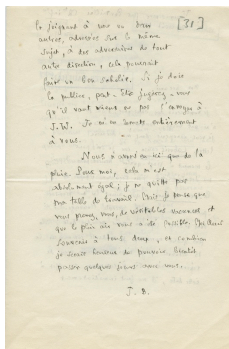 le joignant à un ou deux [31]
autres, adressés sur le même
sujet, à des adversaires de tout
autre direction, cela pourrait
faire un bon
la publier, peut-être jugerez-vous
qu'il vaut mieux ne pas l'envoyer à
J. W. Je m'en remets entièrement
à vous.
Nous n'avons eu ici que de la
pluie. Pour moi, cela m'est
absolument égal; je ne quitte pas
ma table de travail. Mais je pense que
vous prenez, vous, de véritables vacances et
que le plein air vous a été possible.
souvenir à tous deux, et combien
je serais heureux de pouvoir bientôt
passer quelques jours avec vous.
J. B.